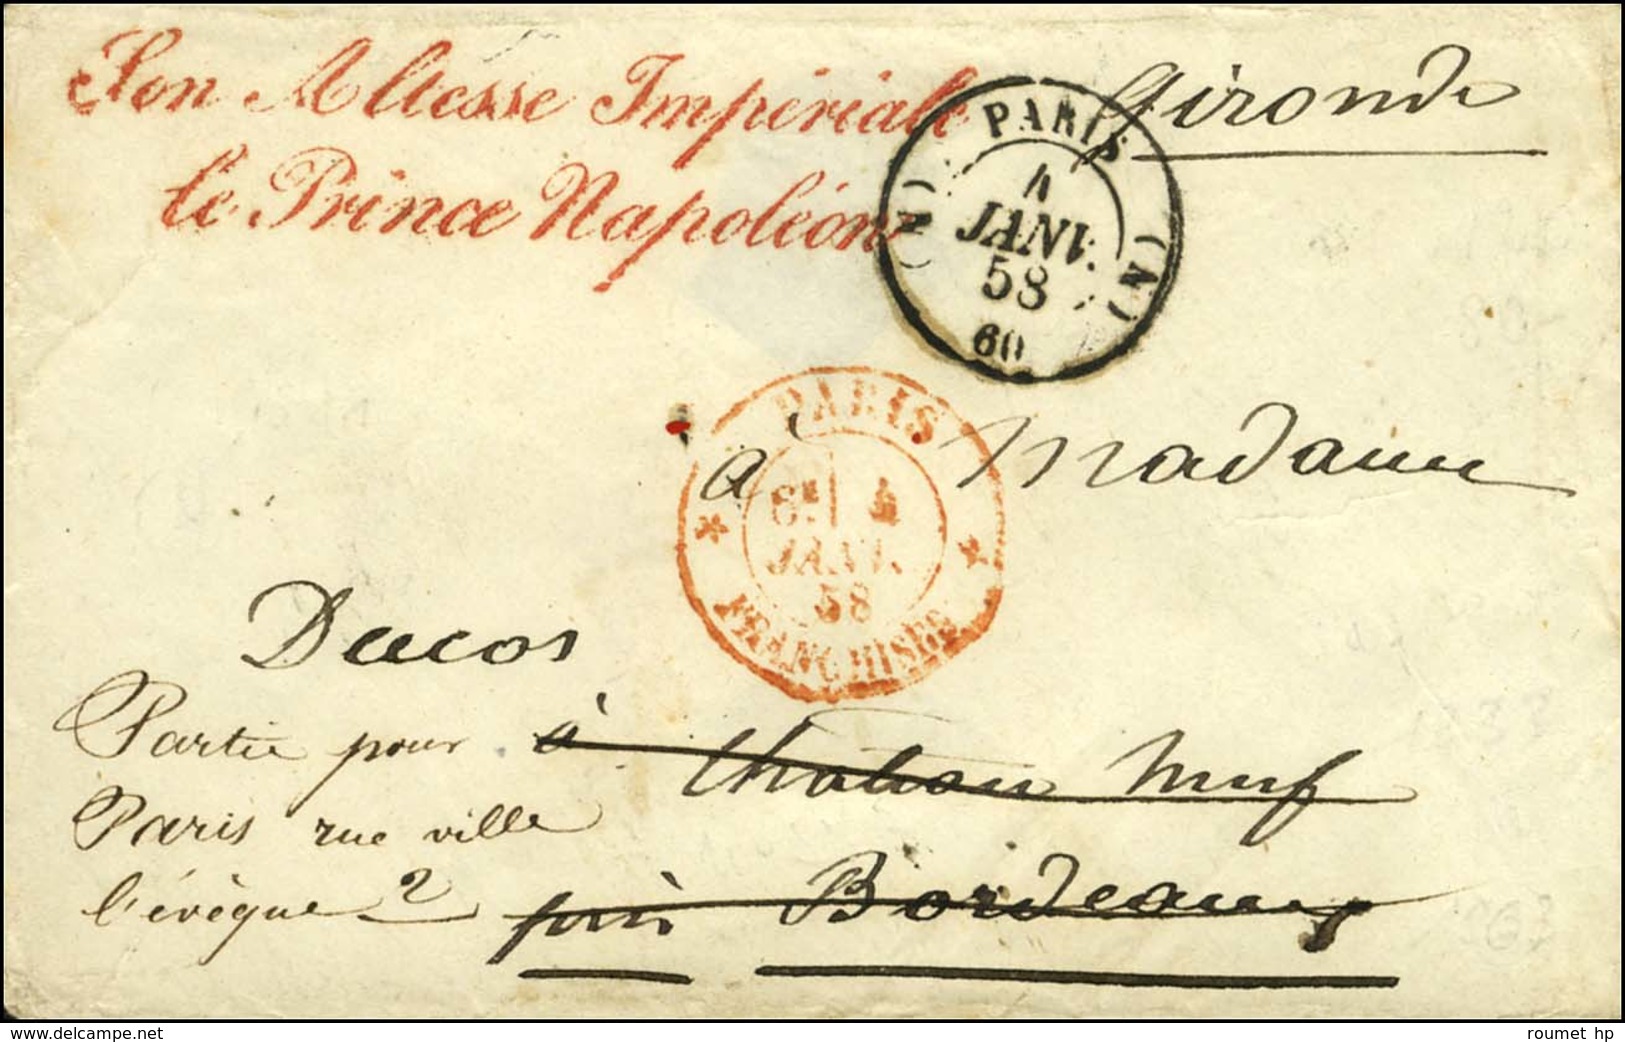 Son Altesse Impériale
le Prince Napoléon
Gironde
PARIS
(N) (N)
4
JANV.
58
60
PARIS
6E 4
JANV.
58
* FRANCHISES *
à Madame
Ducos
à Chateau Neuf
près Bordeaux
Partie pour
Paris rue ville
l'évêque 2
roumet hp